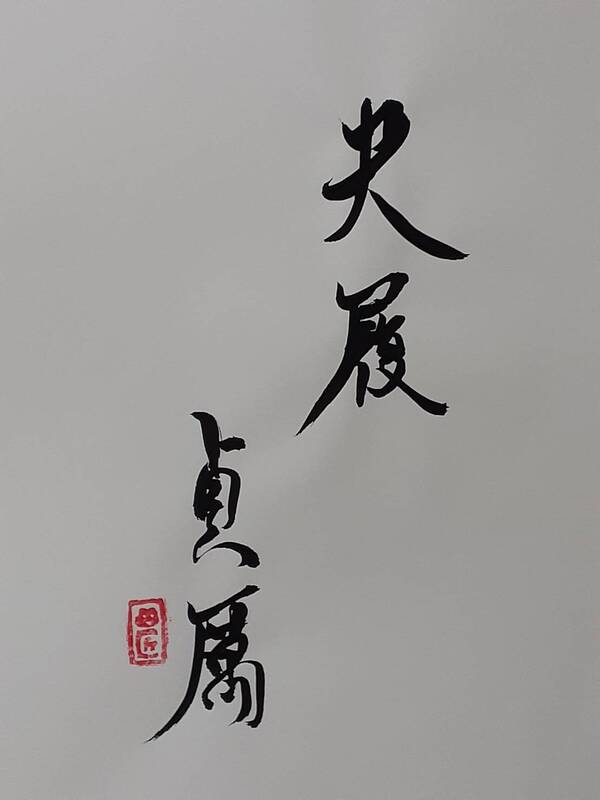 夬履
貞厲